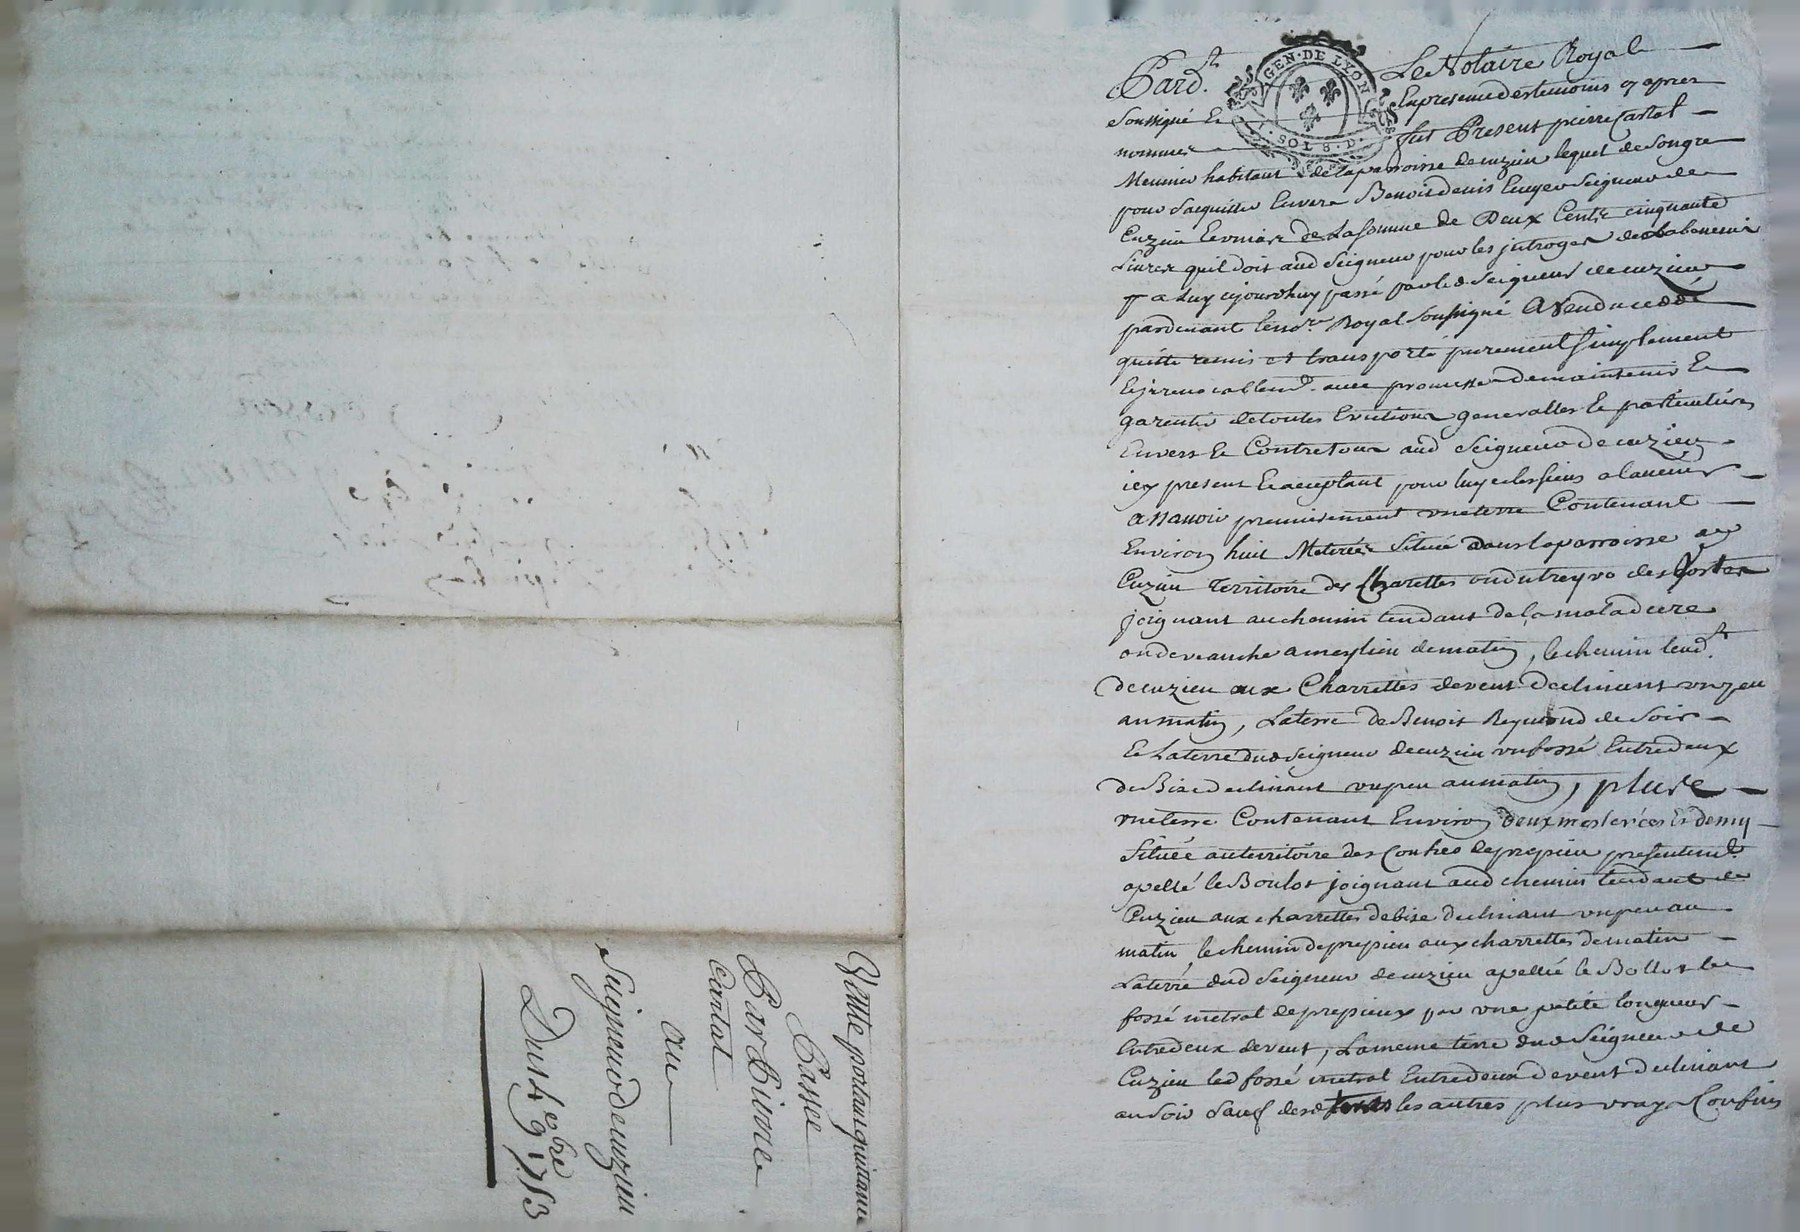 Vente portant quittance
Passée
Par Pierre
Cartal
au
Seigneur de cuzieu
Du 14 9bre 1753
GEN·DE LYON
SOLS·D·
Pard.t Le Notaire Royal
soussigné Et En presence des temoins cy apres
nommés fut Present pierre Cartal
Meunier habitant de la parroisse de cuzieu lequel de son gre
pour s'acquitter Envers Benoit denis Ecuyer Seigneur de
Cuzieu de La somme de Deux Cents cinquante
Livres quil doit aud Seigneur pour les
a Luy ajourdhuy passé par led Seigneur de cuzieu
pardevant le no.re Royal soussigné A Vendu ceddé
quitté remis et transporté purement simplement
Et jrrevocablem.t avec promesse de maintenir Et
garentir de toutes Evictions generalles Et particulieres
Envers Et Contre tous aud Seigneur de cuzieu
icy present Et acceptant pour luy et les siens a lavenir
assavoir premierement une terre Contenant
Environ huit Meterées Située dans la parroisse de
Cuzieu Territoire des Charettes ou du treyvo des
joignant au chemin tendant de la maladiere
a meylieu de matin, le chemin tend.t
de cuzieu aux Charrettes de vent declinant un peu
au matin, La terre de Benoit Reymond de soir
Et La terre dud Seigneur de cuzieu un fossé Entredeux
de Bize declinant un peu au matin, plus
une terre Contenant Environ deux mesterées Et demy
Située au territoire des de prepieu presentem.t
apellé le Boulot joignant aud chemin tendant de
Cuzieu aux charrettes de bise declinant un peu au
matin, le chemin de prepieu aux charrettes de matin
La terre dud Seigneur de cuzieu apellée le Bollot le
fossé mitral de prepieux par une petite longueur
Entredeux de vent, La meme terre dud Seigneur de
Cuzieu led fossé mitral Entredeux de vent declinant
au soir sauf desd les autres plus vrays Confins